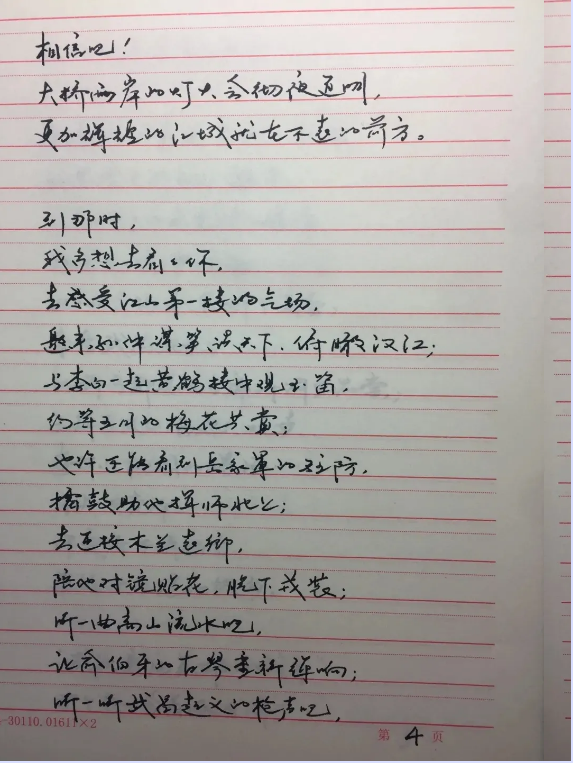 相信吧！
大桥两岸的灯火会彻夜通明，
更加辉煌的江城就在不远的前方。
到那时，
我多想去看看你，
去感受江山第一楼的气场，
邀来孙仲谋，笑谈天下、俯瞰汉江；
与李白一起黄鹤楼中观玉笛，
约等五月的梅花共赏；
也许还能看到岳家军的驻防，
擂鼓助他挥师北上；
去迎接木兰还乡，
陪她对镜贴花，脱下戎装；
听一曲高山流水吧，
让俞伯牙的古琴重新弹响；
听一听武昌起义的枪声吧，
30110.01611×2
第 4 页